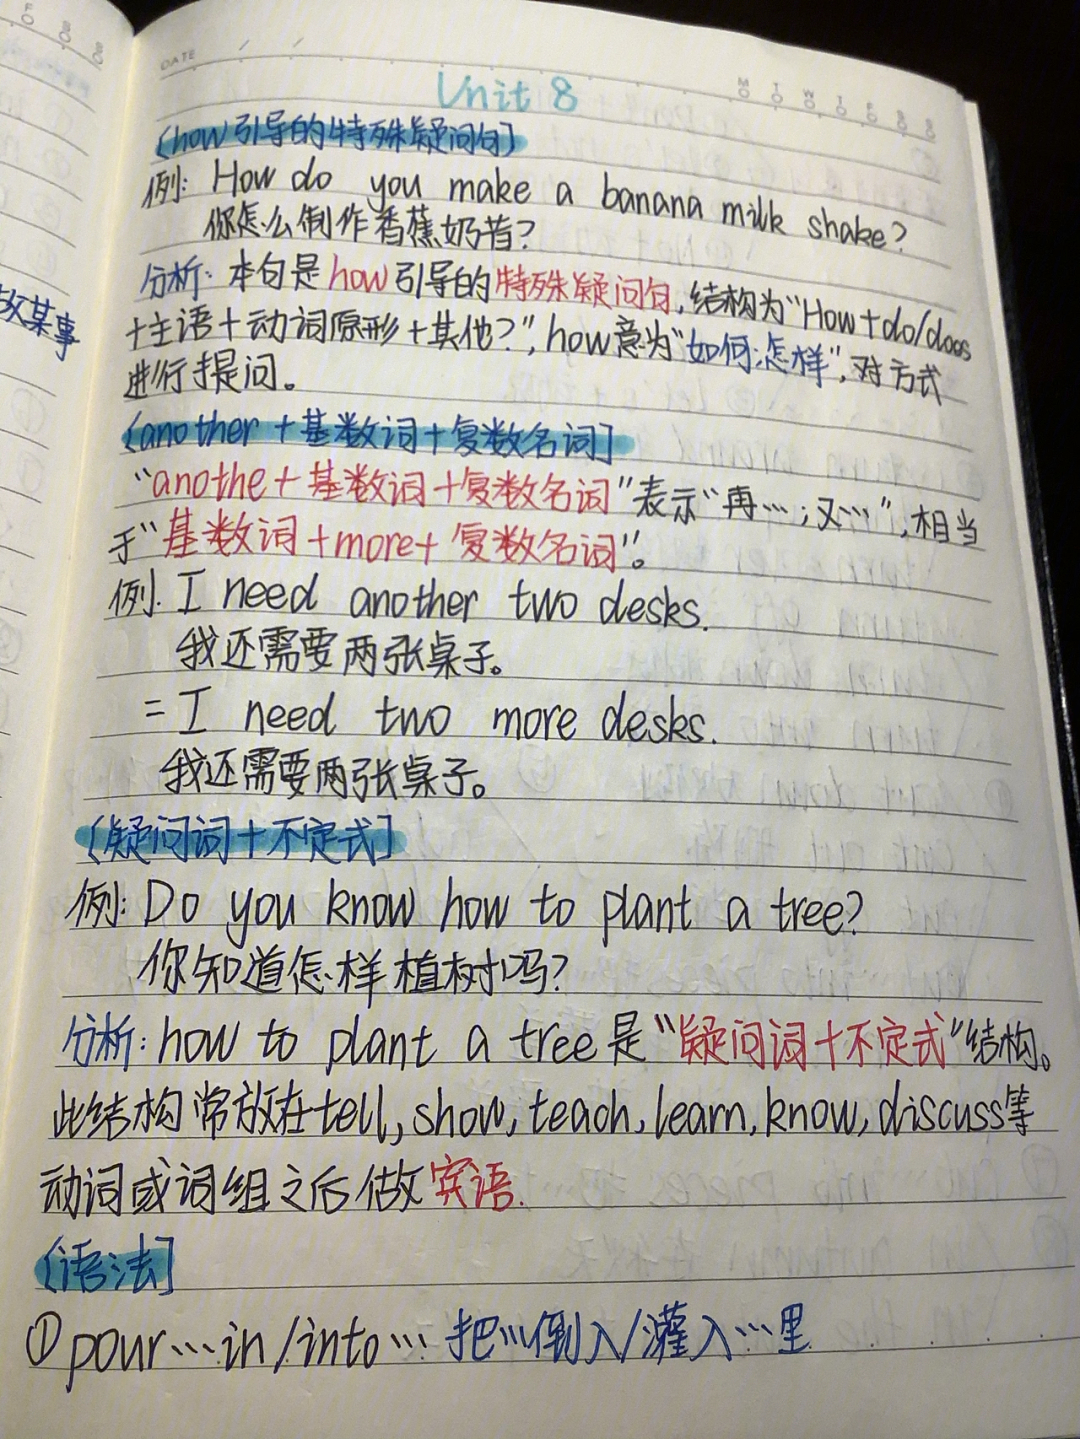 DATE
Unit 8
[how引导的特殊疑问句]
例: How do you make a banana milk shake?
你怎么制作香蕉奶昔?
分析: 本句是how引导的特殊疑问句,结构为"How+do/does
+主语+动词原形+其他?",how意为"如何;怎样",对方式
进行提问。
[another+基数词+复数名词]
"anothe+基数词+复数名词"表示"再…;又…",相当
于"基数词+more+复数名词"。
例. I need another two desks.
我还需要两张桌子。
=I need two more desks.
我还需要两张桌子。
[疑问词+不定式]
例: Do you know how to plant a tree?
你知道怎样植树吗?
分析: how to plant a tree是"疑问词+不定式"结构。
此结构常放在tell, show, teach, learn, know, discuss等
动词或词组之后做宾语.
[语法]
①pour…in/into… 把…倒入/灌入…里
做某事